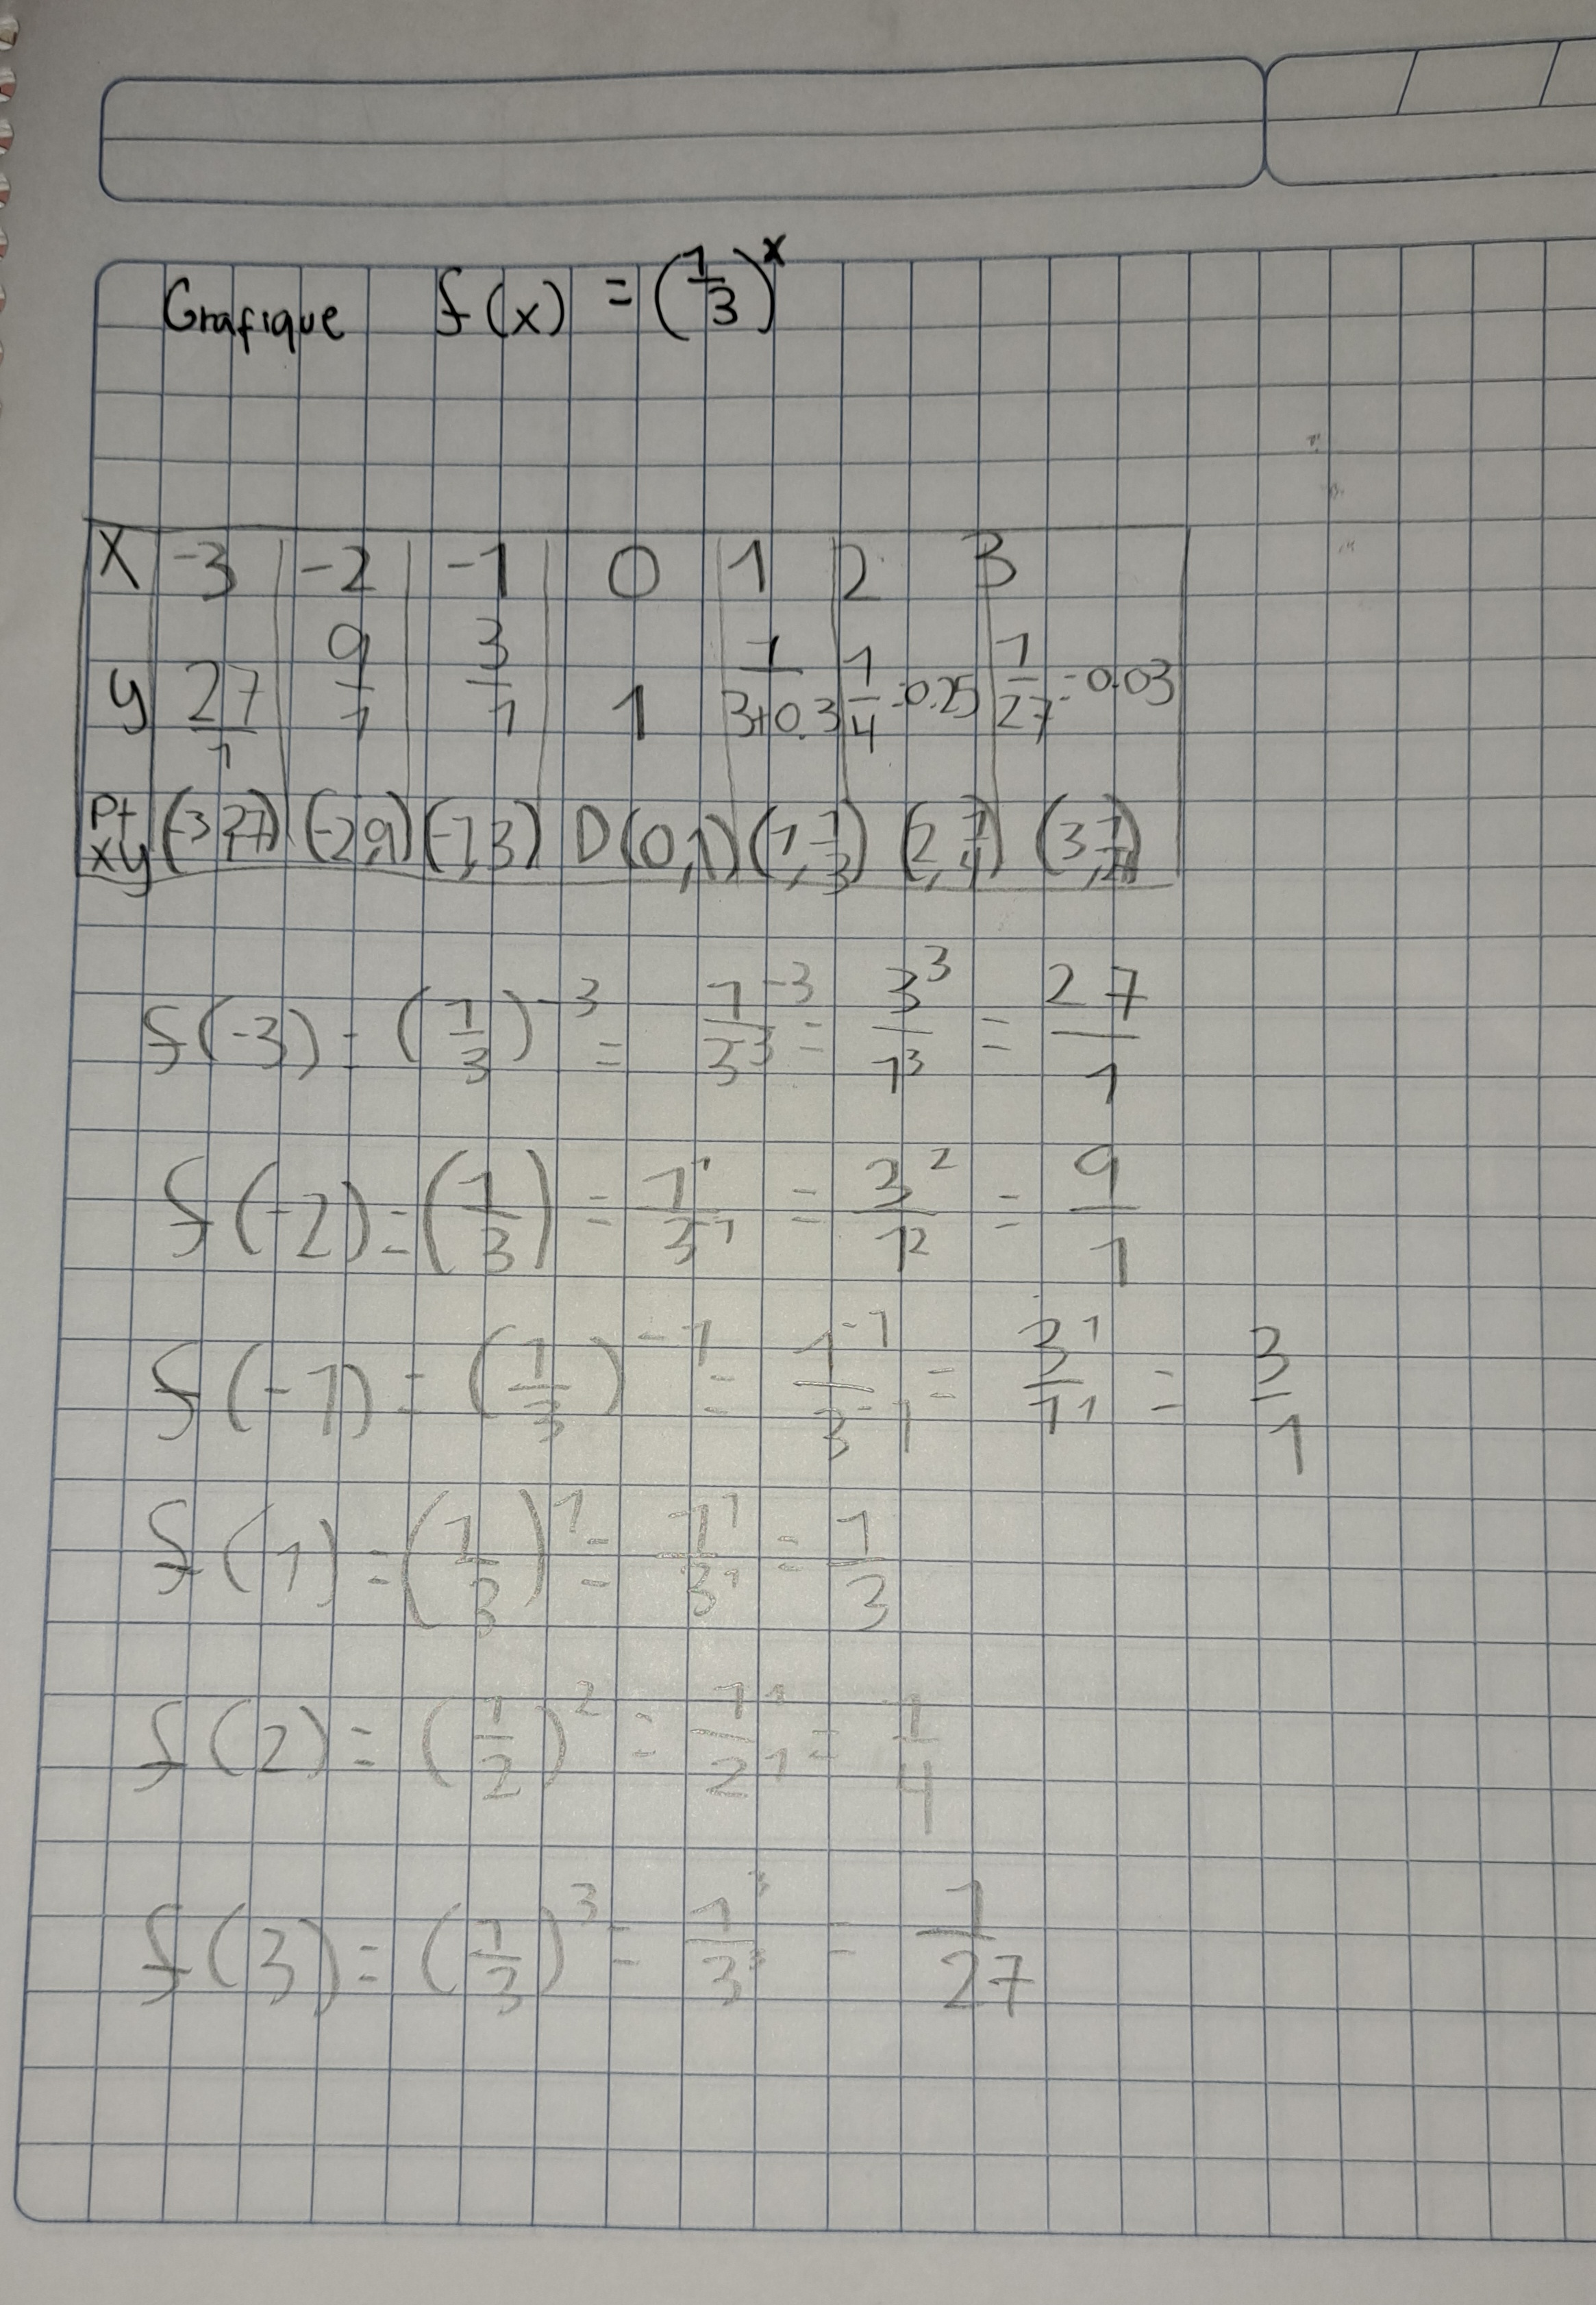 Grafique f(x) = (1/3)^x
X -3 -2 -1 0 1 2 3
y 27/1 9/1 3/1 1 1/3+0.3 1/4=0.25 1/27=0.03
Pt xy (-3,27) (-2,9) (-1,3) D(0,1) (1,1/3) (2,1/4) (3,1/27)
f(-3) = (1/3)^-3 = 1^-3/3^-3 = 3^3/1^3 = 27/1
f(-2) = (1/3) = 1^1/3^-1 = 3^2/1^2 = 9/1
f(-1) = (1/3)^-1 = 1^-1/3^-1 = 3^1/1^1 = 3/1
f(1) = (1/3)^1 = 1^1/3^1 = 1/3
f(2) = (1/2)^2 = 1^1/2^1 = 1/4
f(3) = (1/3)^3 = 1^3/3^3 = 1/27